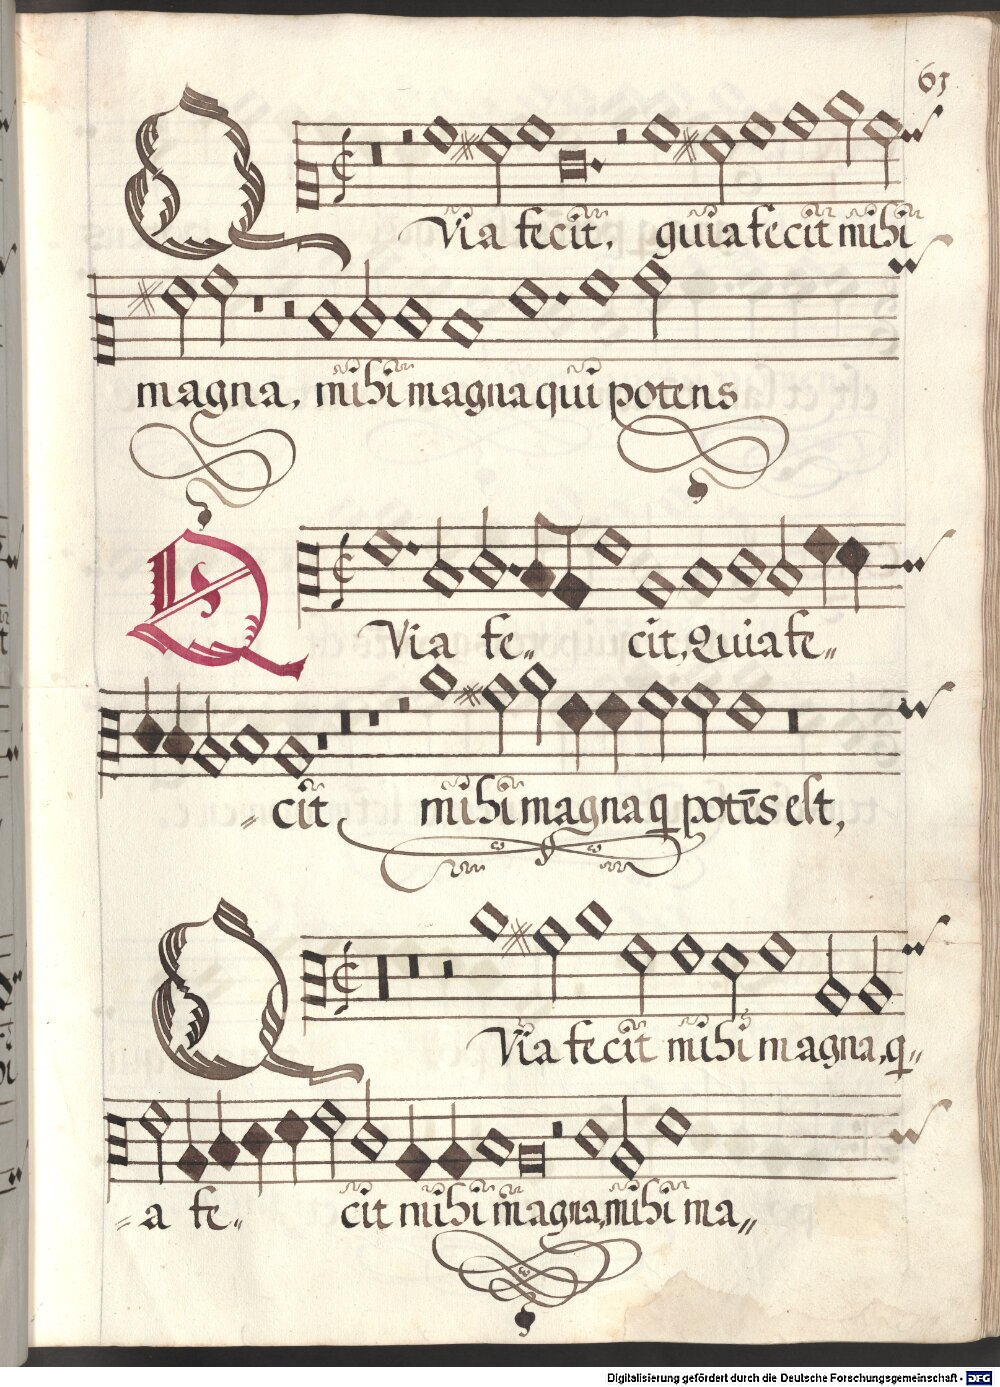 63
QVia fecit, quia fecit mihi
magna, mihi magna qui potens
QVia fe„ cit, Quia fe„
„cit mihi magna q potēs est,
QVia fecit mihi magna, q„
„a fe„ cit mihi magna, mihi ma„
Digitalisierung gefördert durch die Deutsche Forschungsgemeinschaft - DFG